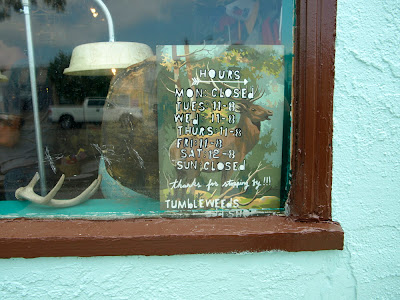 HOURS
MON: CLOSED
TUES: 11-8
WED: 11-8
THURS: 11-8
FRI: 11-8
SAT: 12-8
SUN: CLOSED
thanks for stopping by!!!
TUMBLEWEEDS
SHOP